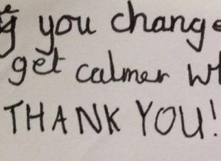 you change
get calmer wh
THANK YOU!